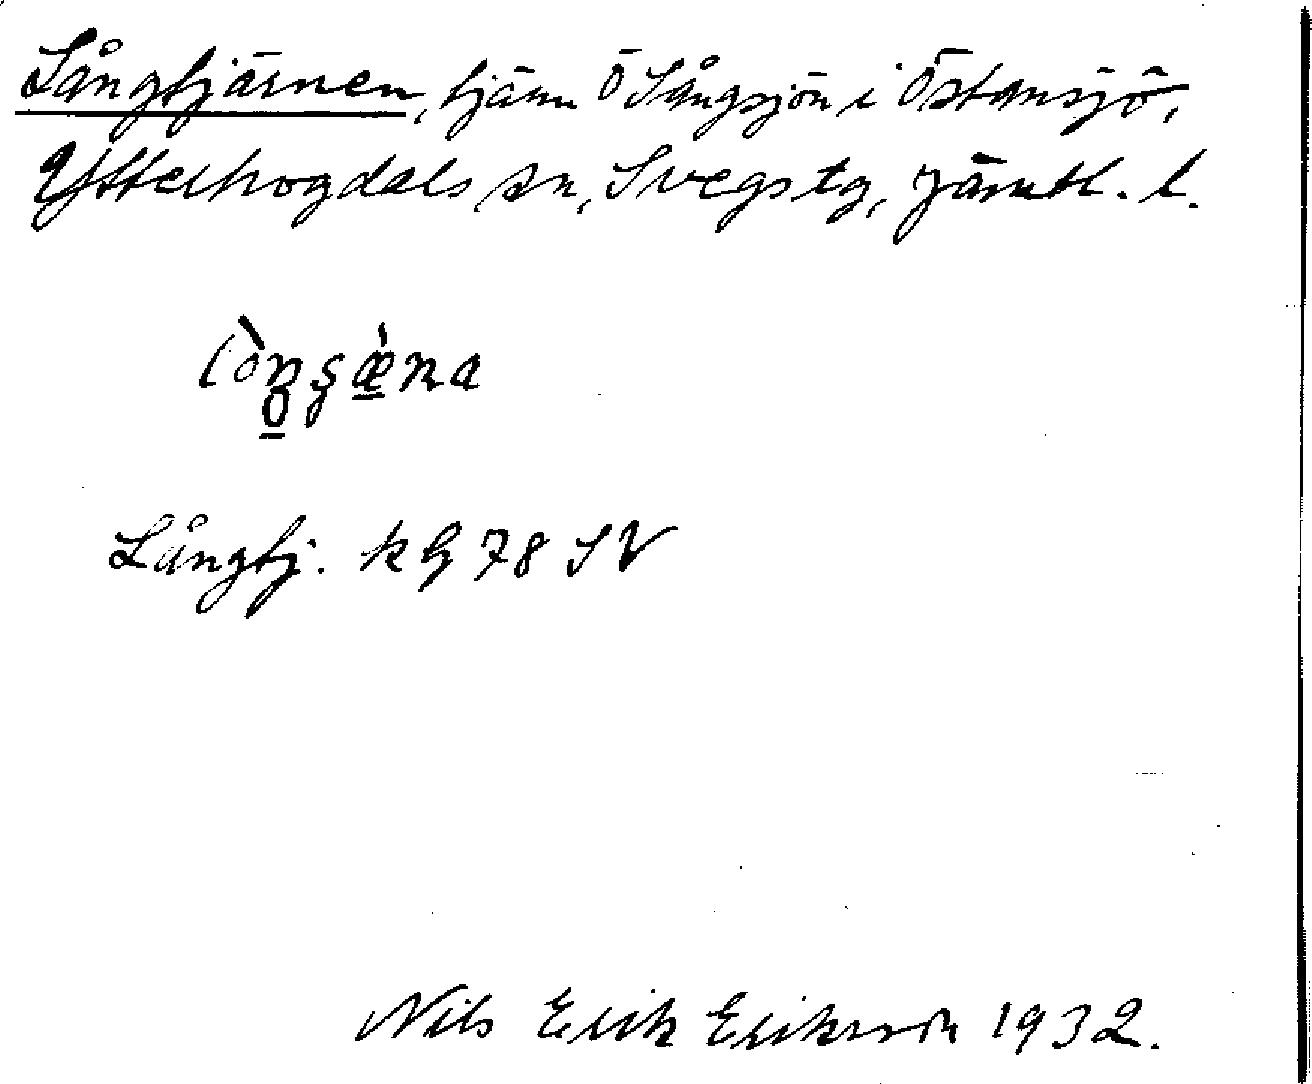 Långtjärnen, tjärn Ö Sångsjön i Östansjö,
Ytterhogdals sn, Svegs tg, Jämtl. l.
Långtj. kG 78 SV
Nils Erik Eriksson 1932.